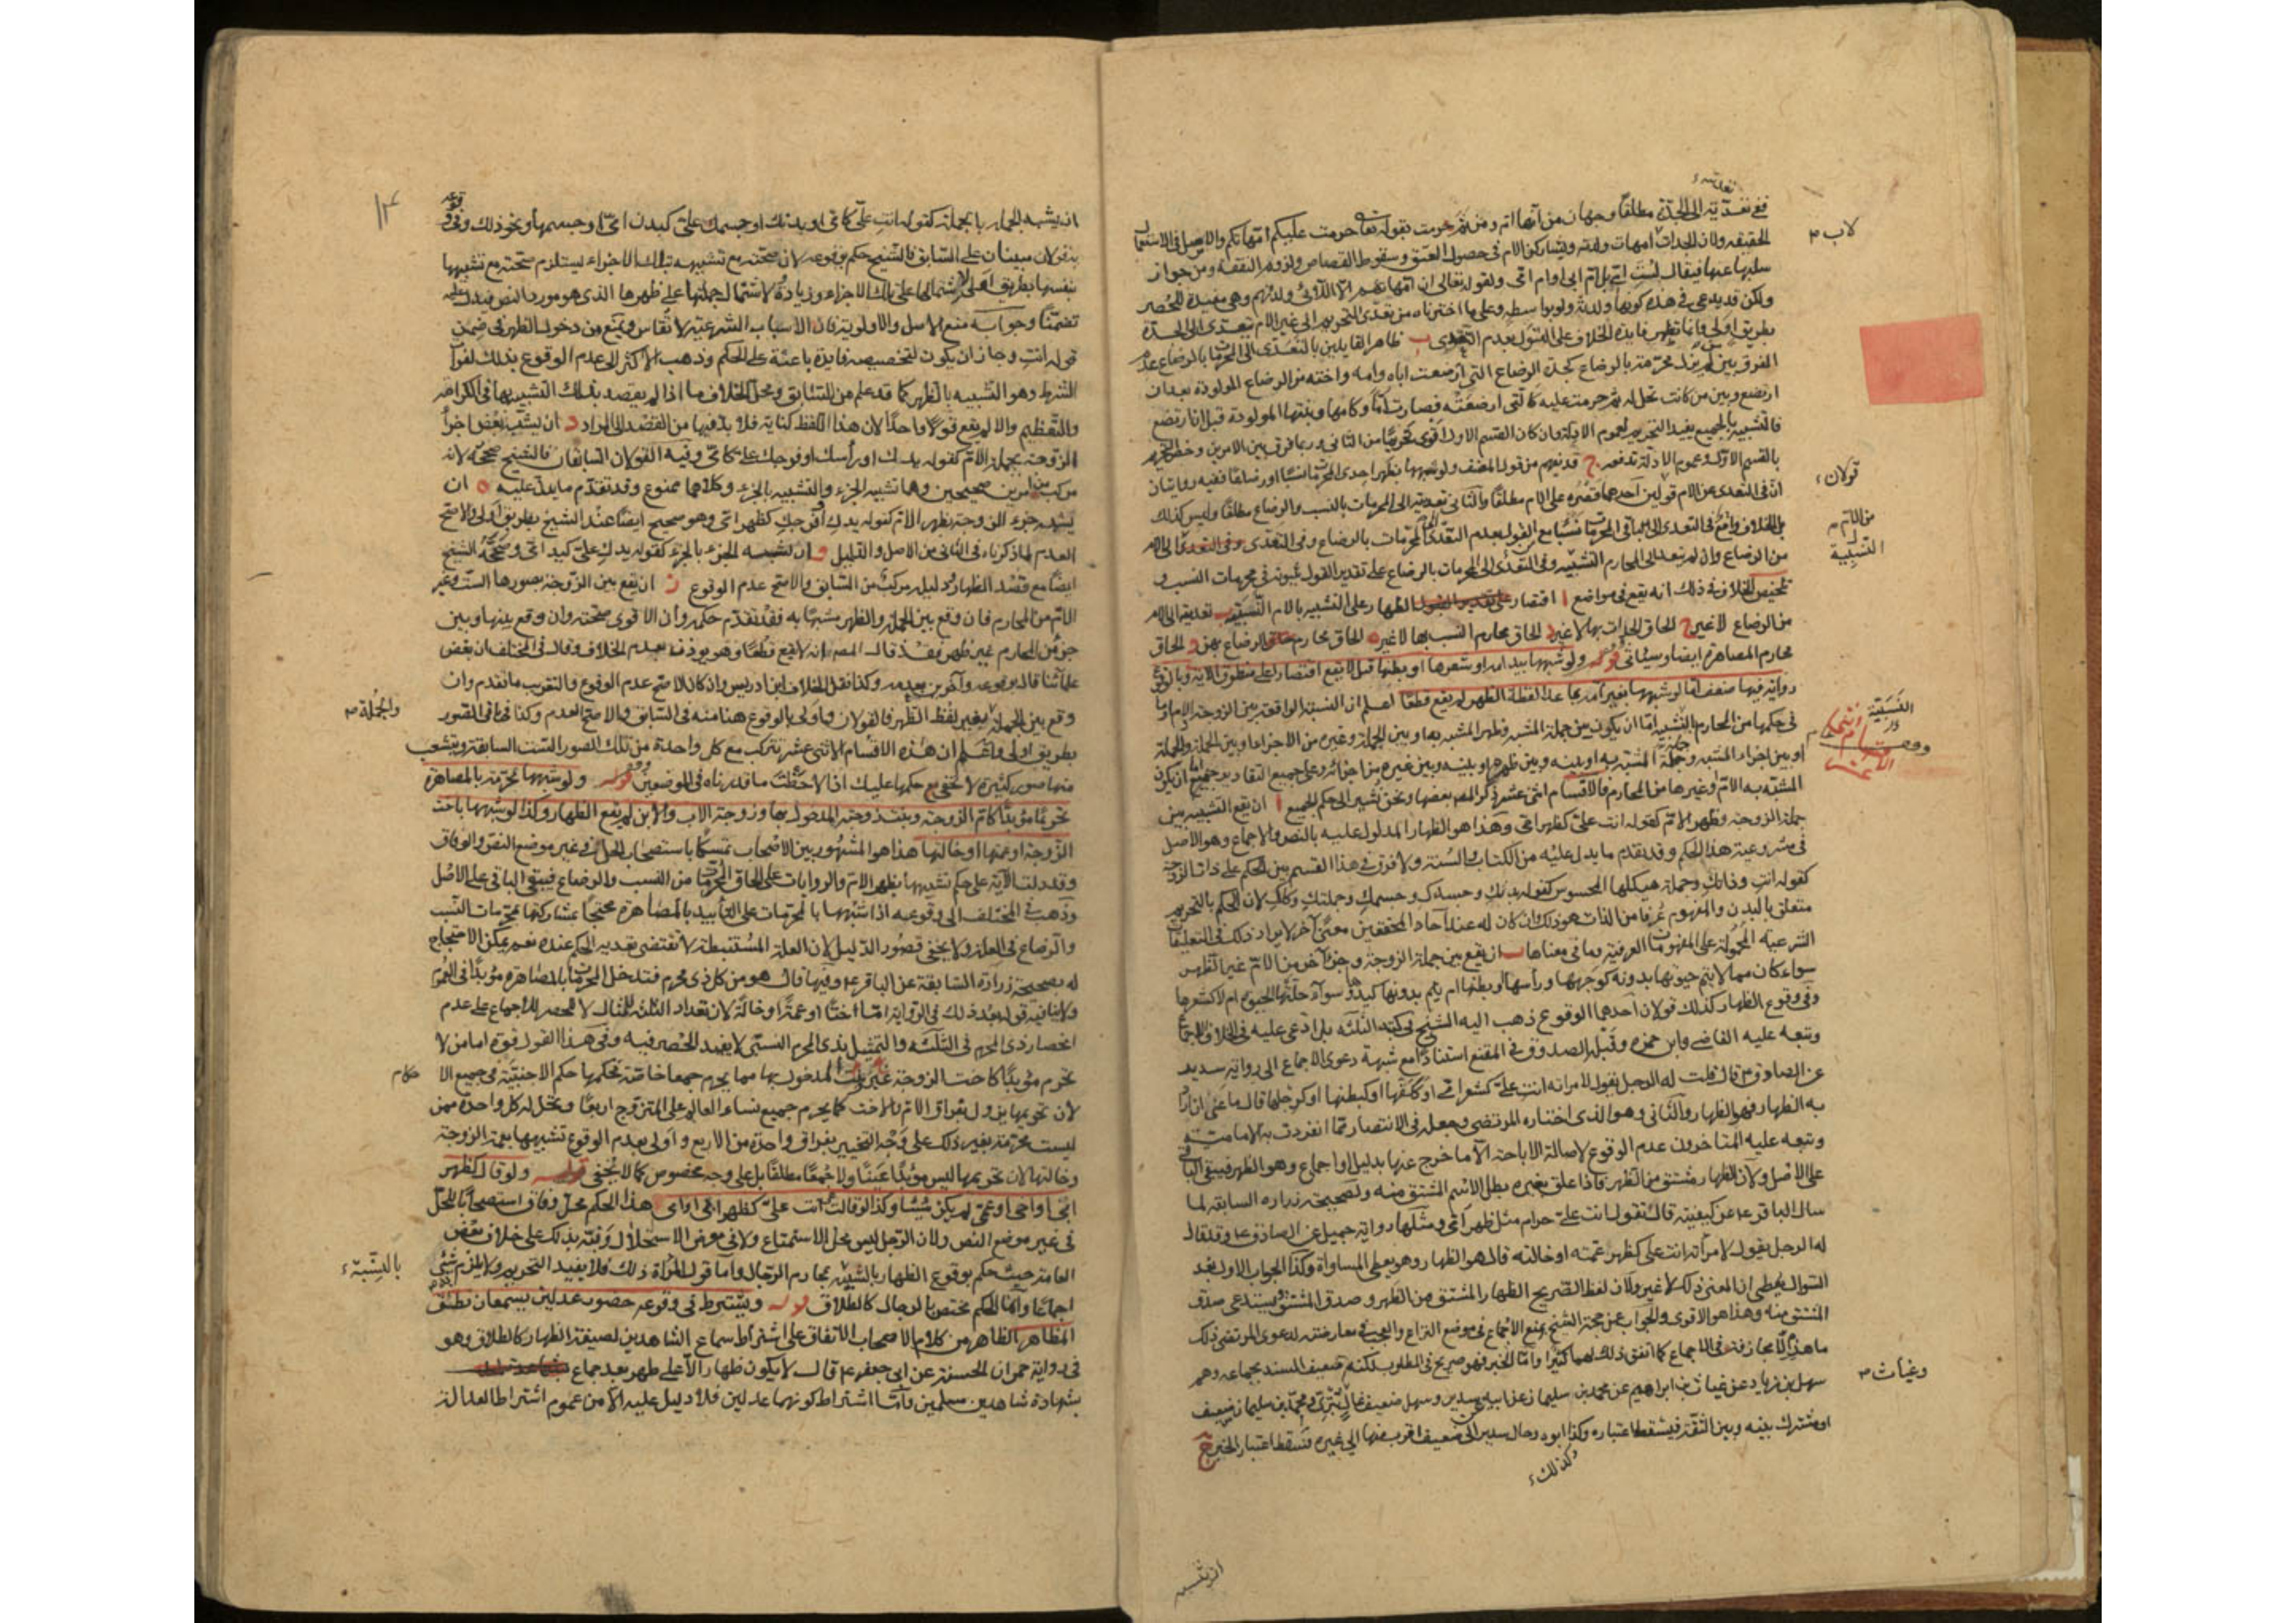 ففي تعديته الى الجدة مطلقا وجهان من انها ام ومن ثم حرمت بقوله تعالى حرمت عليكم امهاتكم والاصل في الاستعمال
الحقيقة ولان للجدات امهات ولدته ويشاركن الام في حصول العتق وسقوط القصاص ولزوم النفقة ومن جواز
سلبها عنها فيقال ليست امي بل ام ابي او ام امي ولقوله تعالى ان امهاتهم الا اللائي ولدنهم وهي مفيدة للحصر
ولكن قد يدعى في هذه كونها ولدته ولو بواسطة وعلى ما اخترناه من تعدي التحريم الى غير الام تتعدى الى الجدة
بطريق اولى وانما تظهر فايدة الخلاف على القول بعدم التعدي ب ظاهر القايلين بالتعدي الى المحرمات بالرضاع عدم
الفرق بين من لم يزل محرمته بالرضاع كجدة الرضاع التي ارضعت اباه وامه واخته من الرضاع المولودة بعد ان
ارتضع وبين من كانت تحل له ثم حرمت عليه كالتي ارضعته فصارت اما وكامها وبنتها المولودة قبل ان ارتضع
فالتشبيه بالجميع يفيد التحريم لعموم الادلة وان كان القسم الاول اقوى تحريما من الثاني وربما فرق بين الامرين وخص التحريم
بالقسم الاول وعموم الادلة تدفعه ج قد يفهم من قول المصنف ولو شبهها بظهر احدى المحرمات نسبا او رضاعا ففيه روايتان
ان في التعدي عن الام قولين احدهما قصره على الام مطلقا والثاني تعديته الى المحرمات بالنسب والرضاع مطلقا وليس كذلك
بل الخلاف واقع في التعدي الى باقي المحرمات نسبا مع القول بعدم التعدي الى المحرمات بالرضاع وفي التعدي الى الام
من الرضاع وان لم نعد الى المحارم النسبية وفي التعدي الى المحرمات بالرضاع على تقدير القول بثبوته في محرمات النسب و
تلخيص الخلاف في ذلك انه يقع في مواضع ا اقتصار الظهار على التشبيه بالام النسبية ب تعديته الى الام
من الرضاع لا غير ج الحاق الجدات بها لا غير د الحاق محارم النسب بها لا غير ه الحاق محارم الرضاع بهن و الحاق
محارم المصاهرة ايضا وسيأتي قوله ولو شبهها بيد امه او شعرها او بطنها قيل لا يقع اقتصارا على منطوق الاية وبالوقوع
رواية فيها ضعف اما لو شبهها بغير امه بما عدا لفظة الظهر لم يقع قطعا اعلم ان النسبة الواقعة بين الزوجة والام وما
في حكمها من المحارم النسبية اما ان يكون بين جملة المشبه وظهر المشبه بها وبين الجملة وغيره من الاجزاء او بين الجملة والجملة
او بين اجزاء المشبه وجملة المشبه به او بينه وبين ظهره او بينه وبين غيره من اجزائه وعلى جميع التقادير جميعا اما ان يكون
المشبه به الام وغيرها من المحارم فالاقسام اثنى عشر ذكر المص بعضها ونحن نشير الى حكم الجميع ا ان يقع التشبيه بين
جملة الزوجة وظهر الام كقوله انت علي كظهر امي وهذا هو الظهار المدلول عليه بالنص والاجماع وهو الاصل
في مشروعية هذا الحكم وقد تقدم ما يدل عليه من الكتاب والسنة ولا فرق في هذا القسم بين الحكم على ذات الزوجة
كقوله انت وذاتك وجملة هيكلها المحسوس كقوله بدنك وجسدك وجسمك وجملتك وكلك لان الحكم بالتحريم
متعلق بالبدن والمفهوم عرفا من الذات هو ذلك وان كان له عند آحاد المحققين معنى آخر لا يراد ذلك في التعليقات
الشرعية المحمولة على المفهومات العرفية وما في معناها ب ان يقع بين جملة الزوجة وجزء آخر من الام غير الظهر
سواء كان مما لا يتم حيوتها بدونه كوجهها ورأسها وبطنها ام يتم بدونها كيدها سواء حلتها الحيوة ام لا كشعرها
وفي وقوع الظهار كذلك قولان احدهما الوقوع ذهب اليه الشيخ في كتبه الثلثة بل ادعى عليه في الخلاف الاجماع
وتبعه عليه القاضي وابن حمزة وقبلهم الصدوق في المقنع استنادا مع شبهة دعوى الاجماع الى رواية سدير
عن الصادق ع قال قلت له الرجل يقول لامراته انت علي كشعر امي او ككفها او كبطنها او كرجلها قال ما عنى ان اراد
به الظهار فهو الظهار والثاني وهو الذي اختاره المرتضى وجعله في الانتصار مما انفردت به الامامية
وتبعه عليه المتاخرون عدم الوقوع لاصالة الاباحة الا ما خرج عنها بدليل او اجماع وهو الظهر فيبقى الباقي
على الاصل ولان الظهار مشتق من الظهر فاذا علق بغيره بطل الاسم المشتق منه ولصحيحة زراره السابقة لما
سال الباقر ع عن كيفيته قال تقول انت علي حرام مثل ظهر امي ومثلها رواية جميل عن الصادق ع وقد قال
له الرجل يقول لامرأته انت علي كظهر عمته او خالته قال هو الظهار وهو يعطي المساواة وكذا الجواب الاول بعد
السؤال يعطي ان المعنى ذلك لا غير ولان لفظ الصريح الظهار المشتق من الظهر وصدق المشتق يستدعي صدق
المشتق منه وهذا هو الاقوى والجواب عن حجة الشيخ بمنع الاجماع في موضع النزاع والعجب في معارضته لدعوى المرتضى ذلك
ما هذا الا مجازفة في الاجماع كما اتفق ذلك لهما كثيرا واما الخبر فهو صريح في المطلوب لكنه ضعيف السند بجماعة وهم
سهل بن زياد عن غياث بن ابراهيم عن محمد بن سليمان عن ابيه عن سدير وسهل ضعيف غال بتري ومحمد بن سليمان ضعيف
او مشترك بينه وبين الثقة فيسقط اعتباره وكذا ابوه وحال سدير الى ضعيف اقرب منها الى غيره فسقط اعتبار الخبر ج
كذلك
لاب م
قولان
من الام م
النسبية
النسبية
وغياث م
ان يشبه
١٢
ان يشبه الجملة بالجملة كقوله انت علي كامي او بدنك او جسمك علي كبدن امي او جسمها او نحو ذلك وفي وقوعه
به قولان مبنيان على السابق فالشيخ حكم بوقوعه لان صحته مع تشبيهه بتلك الاجزاء يستلزم صحته مع تشبيهها
بنفسها بطريق اولى لاشتمالها على تلك الاجزاء وزيادة لاشتمال جملتها على ظهرها الذي هو مورد النص فيدل عليه
تضمنا وجوابه منع الاصل والاولوية فان الاسباب الشرعية لا تقاس ونمنع من دخول الظهر في ضمن
قوله انت وجاز ان يكون لتخصيصه فايدة باعثة على الحكم وذهب الاكثر الى عدم الوقوع بذلك لفوات
الشرط وهو التشبيه بالظهر كما قد علم من السابق ومحل الخلاف ما اذا لم يقصد بذلك التشبيه بها في الكرامة
والتعظيم والا لم يقع قولا واحدا لان هذا اللفظ كناية فلا بد فيها من القصد الى المراد د ان يشبه بعض اجزاء
الزوجة بجملة الام كقوله يدك او رأسك او فرجك علي كامي وفيه القولان السابقان فالشيخ صححه لانه
مركب من امرين صحيحين وهما تشبيه الجزء والتشبيه بالجزء وكلاهما ممنوع وقد تقدم ما يدل عليه ه ان
يشبه جزء الزوجة بظهر الام كقوله يدك او فرجك كظهر امي وهو صحيح ايضا عند الشيخ بطريق اولى والاصح
العدم لما ذكرناه في الثاني من الاصل والدليل و ان يشبه الجزء بالجزء كقوله يدك علي كيد امي وصححه الشيخ
ايضا مع قصد الظهار لدليل مركب من السابق والاصح عدم الوقوع ز ان يقع بين الزوجة بصورها الست وغير
الام من المحارم فان وقع بين الجملة والظهر مشبها به فقد تقدم حكمه وان الاقوى صحته وان وقع بينها وبين
جزء من المحارم غير ظهر فقد قال المص انه لا يقع قطعا وهو يوذن بعدم الخلاف وقال في المختلف ان بعض
علمائنا قال بوقوعه وآخرين بعدمه وكذا نقل الخلاف ابن ادريس واذ كان الاصح عدم الوقوع والتقريب ما تقدم وان
وقع بين الجملة بغير لفظ الظهر فالقولان واولى بالوقوع هنا منه في السابق والاصح العدم وكذا في باقي الصور
بطريق اولى واعلم ان هذه الاقسام الاثنى عشر تتركب مع كل واحدة من تلك الصور الست السابقة ويتشعب
منها صور كثيرة لا تخفى مع حكمها عليك اذا لاحظت ما قررناه في الموضعين قوله ولو شبهها بمحرمة بالمصاهرة
تحريما مؤبدا كام الزوجة وبنت زوجته المدخول بها وزوجة الاب والابن لم يقع الظهار وكذا لو شبهها باخت
الزوجة او عمتها او خالتها هذا هو المشهور بين الاصحاب تمسكا باستصحاب الحل في غير موضع النص والوفاق
وقد دلت الآية على حكم تشبيهها بظهر الام والروايات على الحاق المحرمات من النسب والرضاع فيبقى الباقي على الاصل
وذهب في المختلف الى وقوعه اذا شبهها بالمحرمات على التأبيد بالمصاهرة محتجا بمشاركتها لمحرمات النسب
والرضاع في العلة ولا يخفى قصور الدليل لان العلة المستنبطة لا تقتضي تعدية الحكم عنده نعم يمكن الاحتجاج
له بصحيحة زرارة السابقة عن الباقر ع وفيها قال هو من كل ذي محرم فتدخل المحرمات بالمصاهرة مؤبدا في العموم
ولا ينافيه قوله بعد ذلك في الرواية اما اختا او عمة او خالة لان تعداد الثلث للمثال لا للحصر للاجماع على عدم
انحصار ذي المحرم في الثلثة والتمثيل بذي المحرم النسبي لا يفيد الحصر فيه وفي هذا القول قوة اما من لا
تحرم مؤبدا كاخت الزوجة وبنت غير المدخول بها مما يحرم جمعا خاصة فحكمها حكم الاجنبية في جميع الاحكام
لان تحريمها يزول بفراق الام والاخت كما يحرم جميع نساء العالم على المتزوج اربعا وتحل له كل واحدة ممن
ليست محرمة بغير ذلك على وجه التخيير بفراق واحدة من الاربع واولى بعدم الوقوع تشبيهها بعمة الزوجة
وخالتها لان تحريمها ليس مؤبدا عينا ولا جمعا مطلقا بل على وجه مخصوص كما لا يخفى قوله ولو قال كظهر
ابي او اخي او عمي لم يكن شيئا وكذا لو قالت هي انت علي كظهر ابي او امي هذا الحكم محل وفاق استصحابا للحل
في غير موضع النص ولان الرجل ليس محل الاستمتاع ولا في معرض الاستحلال ونبه بذلك على خلاف بعض
العامة حيث حكم بوقوع الظهار بالتشبيه بمحارم الرجال واما قول المرأة ذلك فلا يفيد التحريم ولا يلزم شيء
اجماعا وانما الحكم مختص بالرجال كالطلاق قوله ويشترط في وقوعه حضور عدلين يسمعان نطق
المظاهر الظاهر من كلام الاصحاب الاتفاق على اشتراط سماع الشاهدين لصيغة الظهار كالطلاق وهو
في رواية حمران الحسنة عن ابي جعفر ع قال لا يكون ظهار الا على طهر بغير جماع
بشهادة شاهدين مسلمين واما اشتراط كونهما عدلين فلا دليل عليه الا من عموم اشتراط العدالة
والجملة م
حكام
بالنسبة